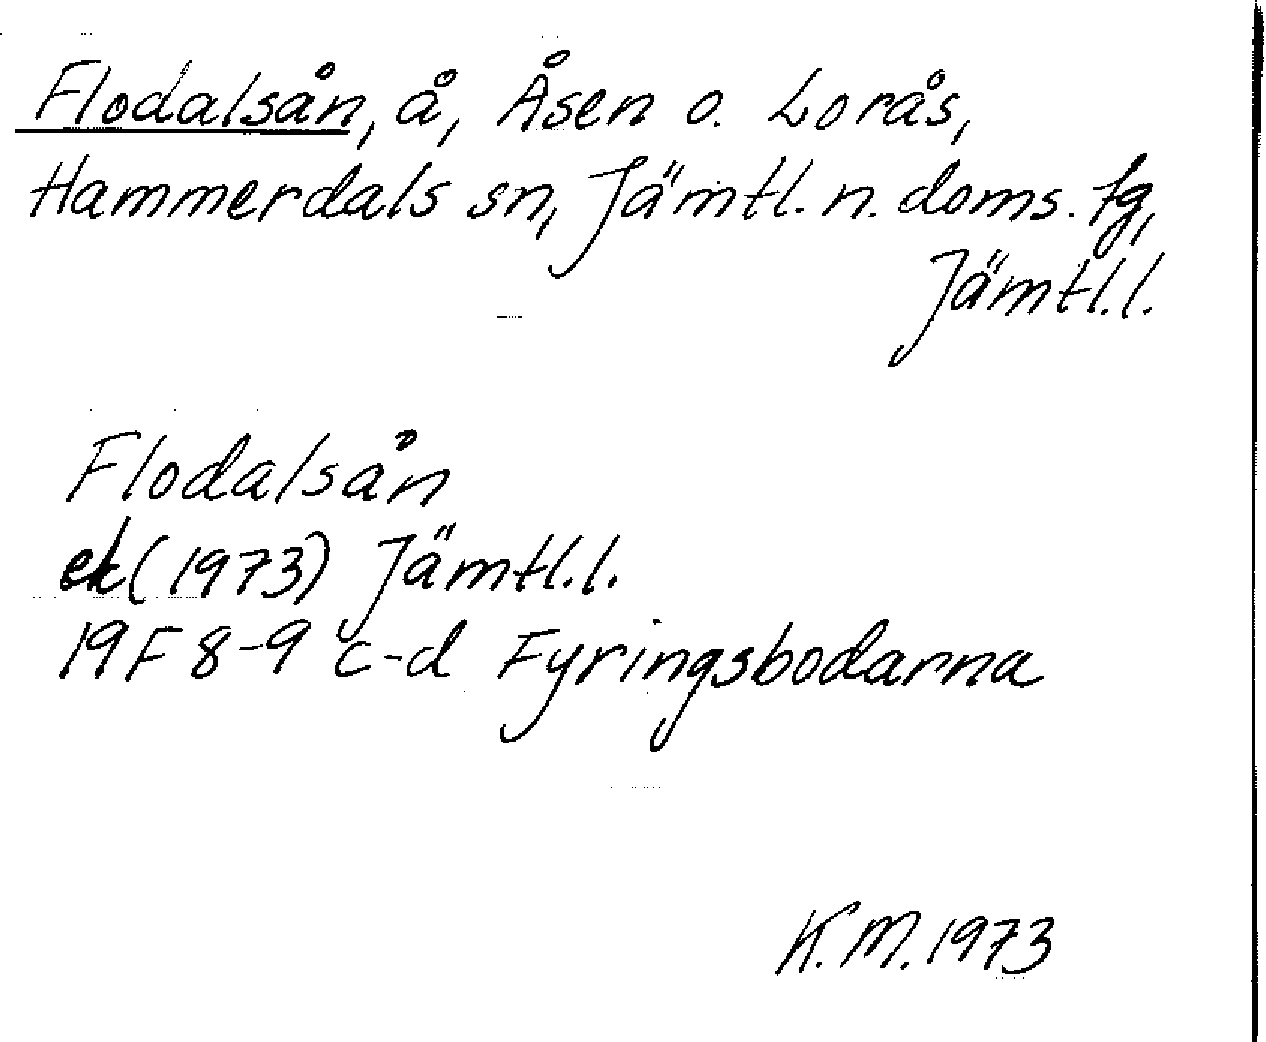 Flodalsån, å, Åsen o. Lorås,
Hammerdals sn, Jämtl. n. doms. tg,
Jämtl. l.
Flodalsån
ek (1973) Jämtl. l.
19F 8-9 c-d Fyringsbodarna
K.M. 1973